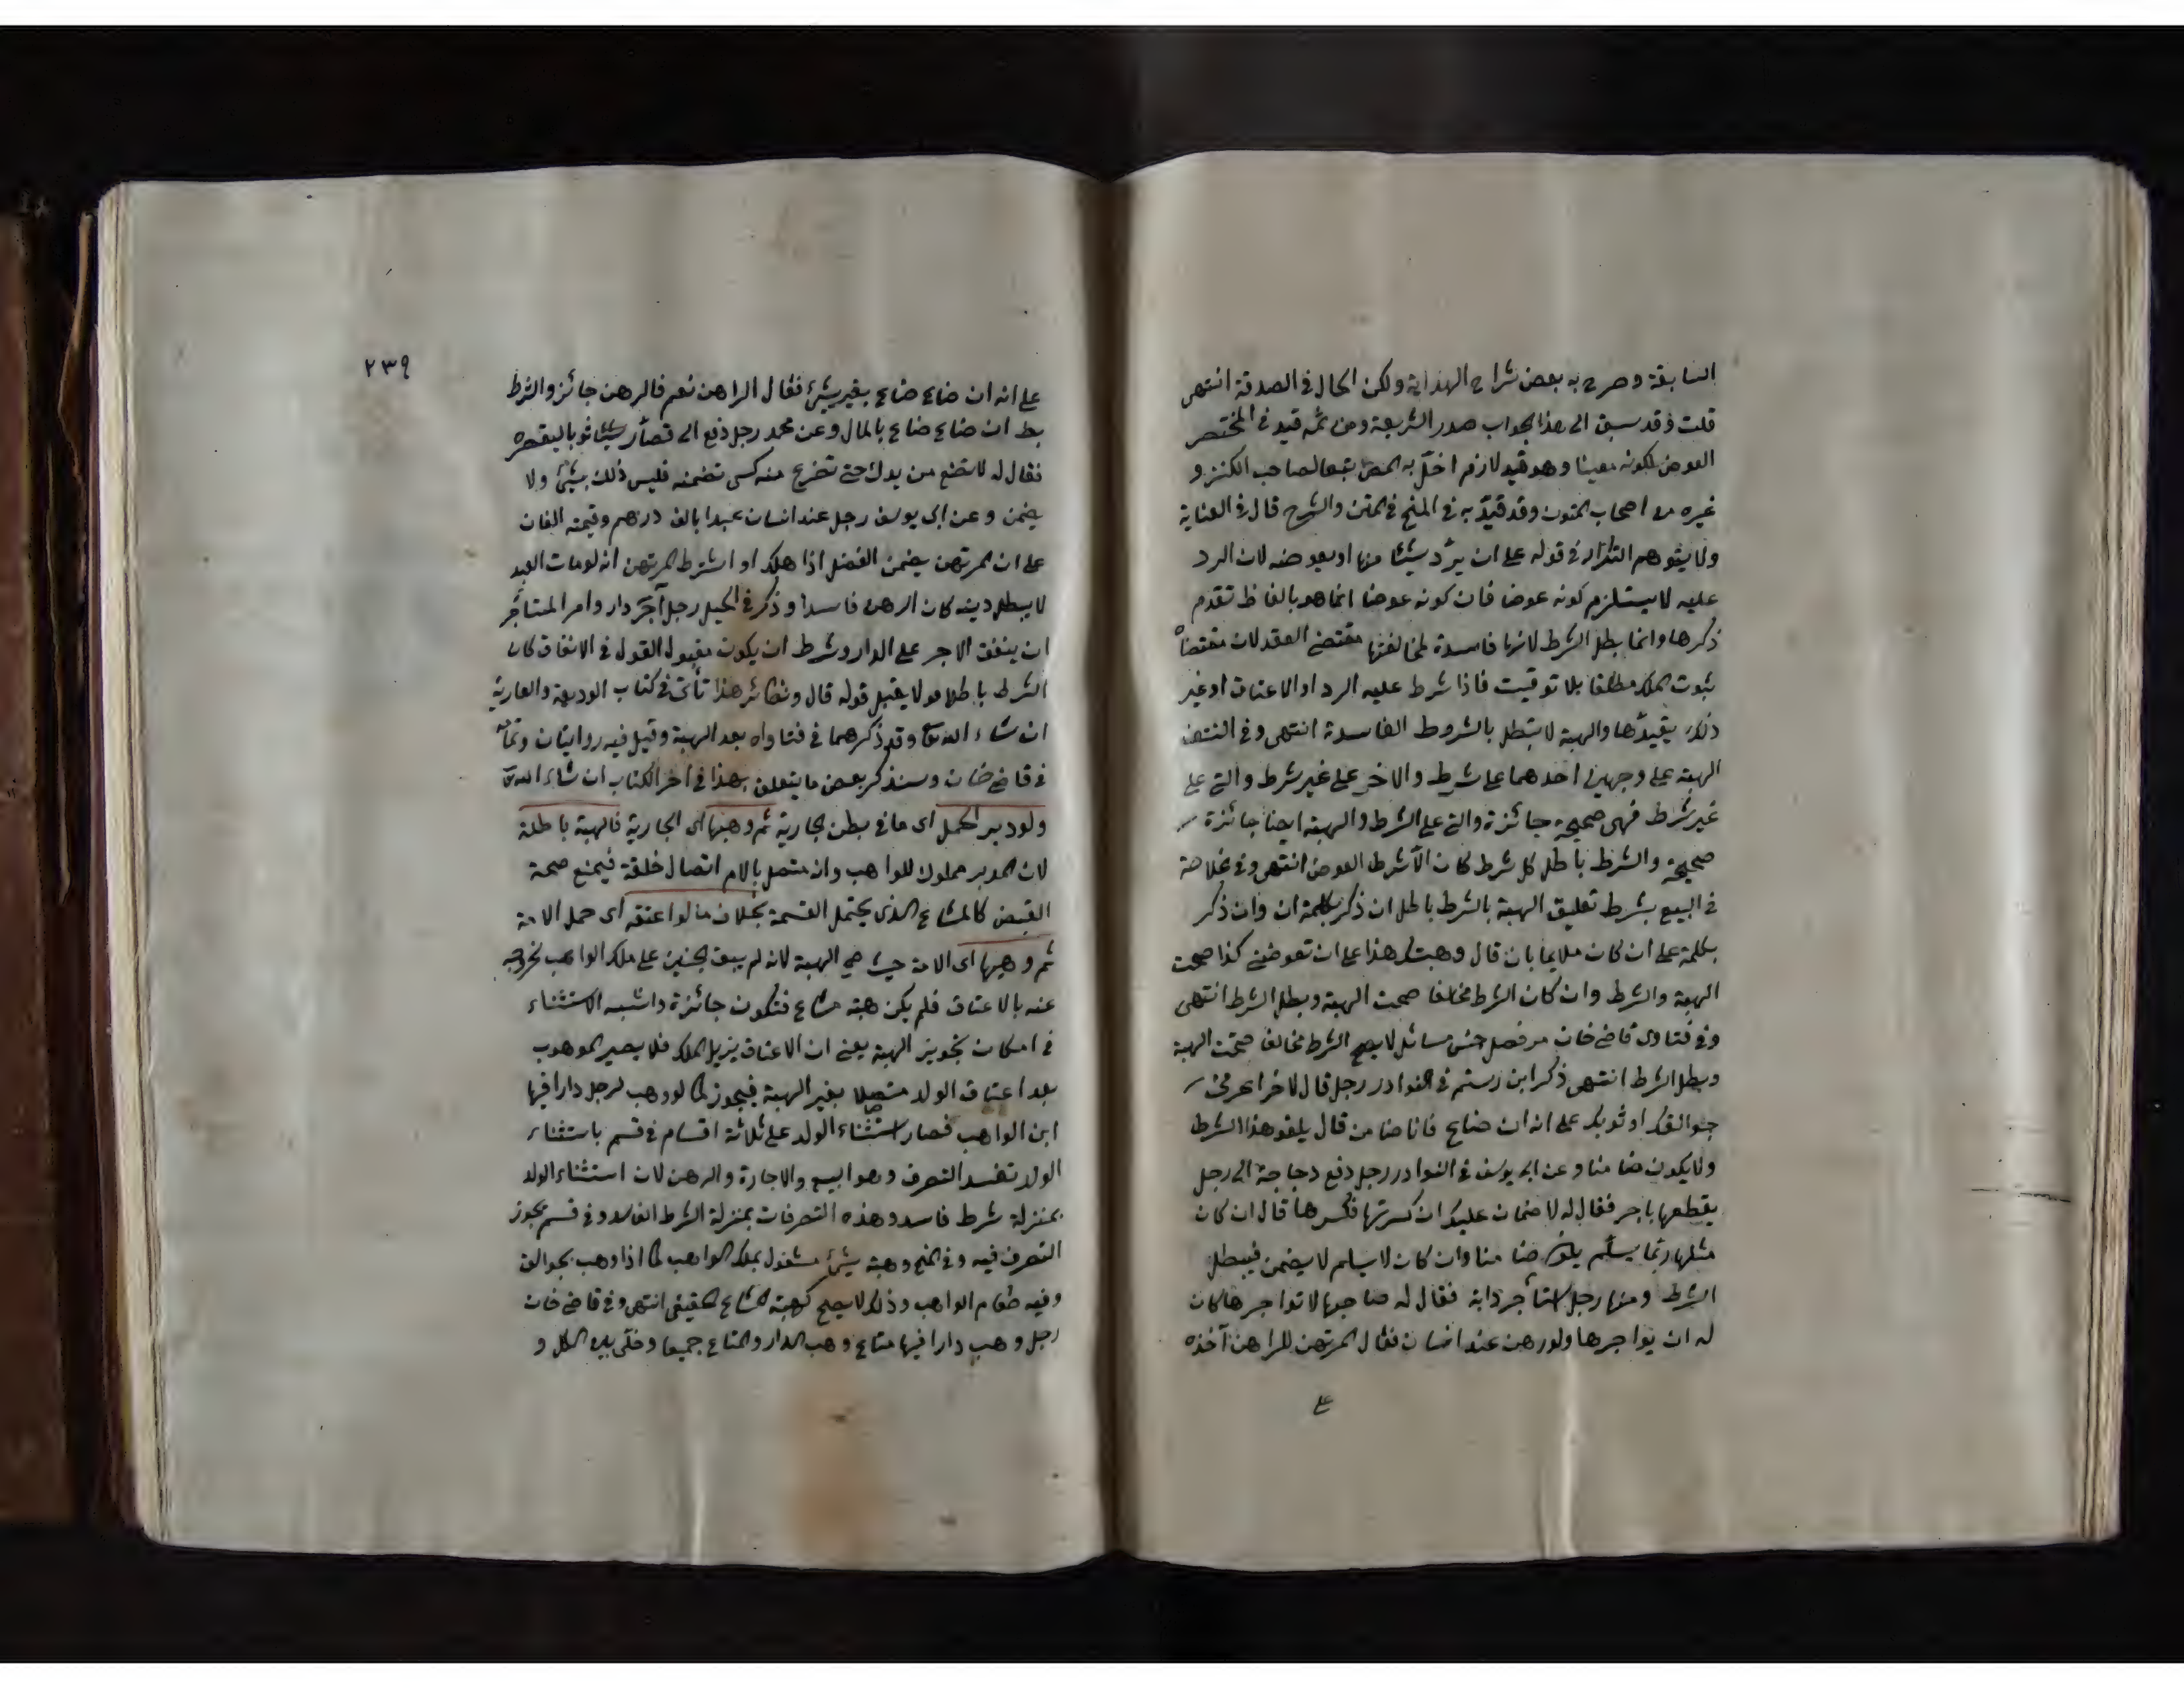 السابقة وصرح به بعض شراح الهداية ولكن الحال في الصدقة انتهى
قلت وقد سبق الى هذا الجواب صدر الشريعة ومن ثمه قيد في المختصر
العوض بكونه معينا وهو قيد لازم اخل به المص تبعا لصاحب الكنز و
غيره من اصحاب المتون وقد قيد به في المنح في المتن والشرح قال في العناية
ولا يتوهم التكرار في قوله على ان يرد شيئا منها او يعوضه لان الرد
عليه لا يستلزم كونه عوضا فان كونه عوضا انما هو بالفاظ تقدم
ذكرها وانما بطل الشرط لانها فاسدة لمخالفتها مقتضى العقد لان مقتضاه
ثبوت الملك مطلقا بلا توقيت فاذا شرط عليه الرد او الاعتاق او غير
ذلك يقيدها والهبة لا تبطل بالشروط الفاسدة انتهى وفي النتف
الهبة على وجهين احدهما على شرط والاخر على غير شرط والتي على
غير شرط فهي صحيحة جائزة والتي على الشرط والهبة ايضا جائزة
صحيحة والشرط باطل كل شرط كان الا شرط العوض انتهى وفي خلاصة
في البيع بشرط تعليق الهبة بالشرط باطل ان ذكر بكلمة ان وان ذكر
بكلمة على ان كان ملايما بان قال وهبتك هذا على ان تعوضني كذا صحت
الهبة والشرط وان كان الشرط مخالفا صحت الهبة وبطل الشرط انتهى
وفي فتاوى قاضي خان من فصل جنس مسائل لا يصح الشرط مخالف صحت الهبة
وبطل الشرط انتهى ذكر ابن رستم في النوادر رجل قال لاخر اعرني
جوالقك او ثوبك على انه ان ضاع فانا ضامن قال يلغو هذا الشرط
ولا يكون ضامنا وعن ابي يوسف في النوادر رجل دفع دجاجة الى رجل
يقطعها باجر فقال له لا ضمان عليك ان كسرتها فكسرها قال ان كان
مثلها ربما يسلم يكون ضامنا وان كان لا يسلم لا يضمن فيبطل
الشرط ومنها رجل استأجر دابة فقال له صاحبها لا تواجرها كان
له ان يواجرها ولو رهن عند انسان فقال المرتهن للراهن آخذه
على
٢٣٩
على انه ان ضاع ضاع بغير شيئ فقال الراهن نعم فالرهن جائز والشرط
بط ان ضاع ضاع بالمال وعن محمد رجل دفع الى قصار ثوبا ليقصره
فقال له لا تضع من يدك حتى تفرغ منه تضمنه فليس ذلك بشيئ ولا
يضمن وعن ابي يوسف رجل عند انسان عبدا بالف درهم وقيمته الفان
على ان المرتهن يضمن الفضل اذا هلك او اشترط المرتهن انه لو مات العبد
لا يبطل دينه كان الرهن فاسدا وذكر في الحيل رجل آجر دار وامر المستأجر
ان ينفق الاجر على الدار وشرط ان يكون مقبول القول في الانفاق كان
الشرط باطلا ولا يقبل قوله قال ونظائر هذا تأتي في كتاب الوديعة والعارية
ان شاء الله تعا وقد ذكرهما في فتاواه بعد الهبة وقيل فيه روايتان وتمامه
في قاضي خان وسنذكر بعض ما يتعلق بهذا في اخر الكتاب ان شاء الله تعا
ولو دبر الحمل اى ما في بطن الجارية ثم وهبها اى الجارية فالهبة باطلة
لان المدبر مملوك للواهب وانه متصل بالام اتصال خلقة فيمنع صحة
القبض كالمشاع الذي يحتمل القسمة بخلاف ما لو اعتقه اى حمل الامة
ثم وهبها اى الامة حيث صح الهبة لانه لم يبق الجنين على ملك الواهب لخروجه
عنه بالاعتاق فلم يكن هبة مشاع فتكون جائزة واشبه الاستثناء
في امكان تجويز الهبة يعني ان الاعتاق يزيل الملك فلا يصير الموهوب
بعد اعتاق الولد متصلا بغير الهبة فيجوز كما لو وهب لرجل دارا فيها
ابن الواهب فصار استثناء الولد على ثلاثة اقسام في قسم باستثناء
الولد تفسد التصرف وهو البيع والاجارة والرهن لان استثناء الولد
بمنزلة شرط فاسد وهذه التصرفات بمنزلة الشرط الفاسد وفي قسم يجوز
التصرف فيه وفي المنح وهبة شيئ مشغول بملك الواهب كما اذا وهب جوالق
وفيه طعام الواهب وذلك لا يصح كهبة المشاع الحقيقي انتهى وفي قاضي خان
رجل وهب دارا فيها متاع وهب الدار والمتاع جميعا وخلى بين الكل و